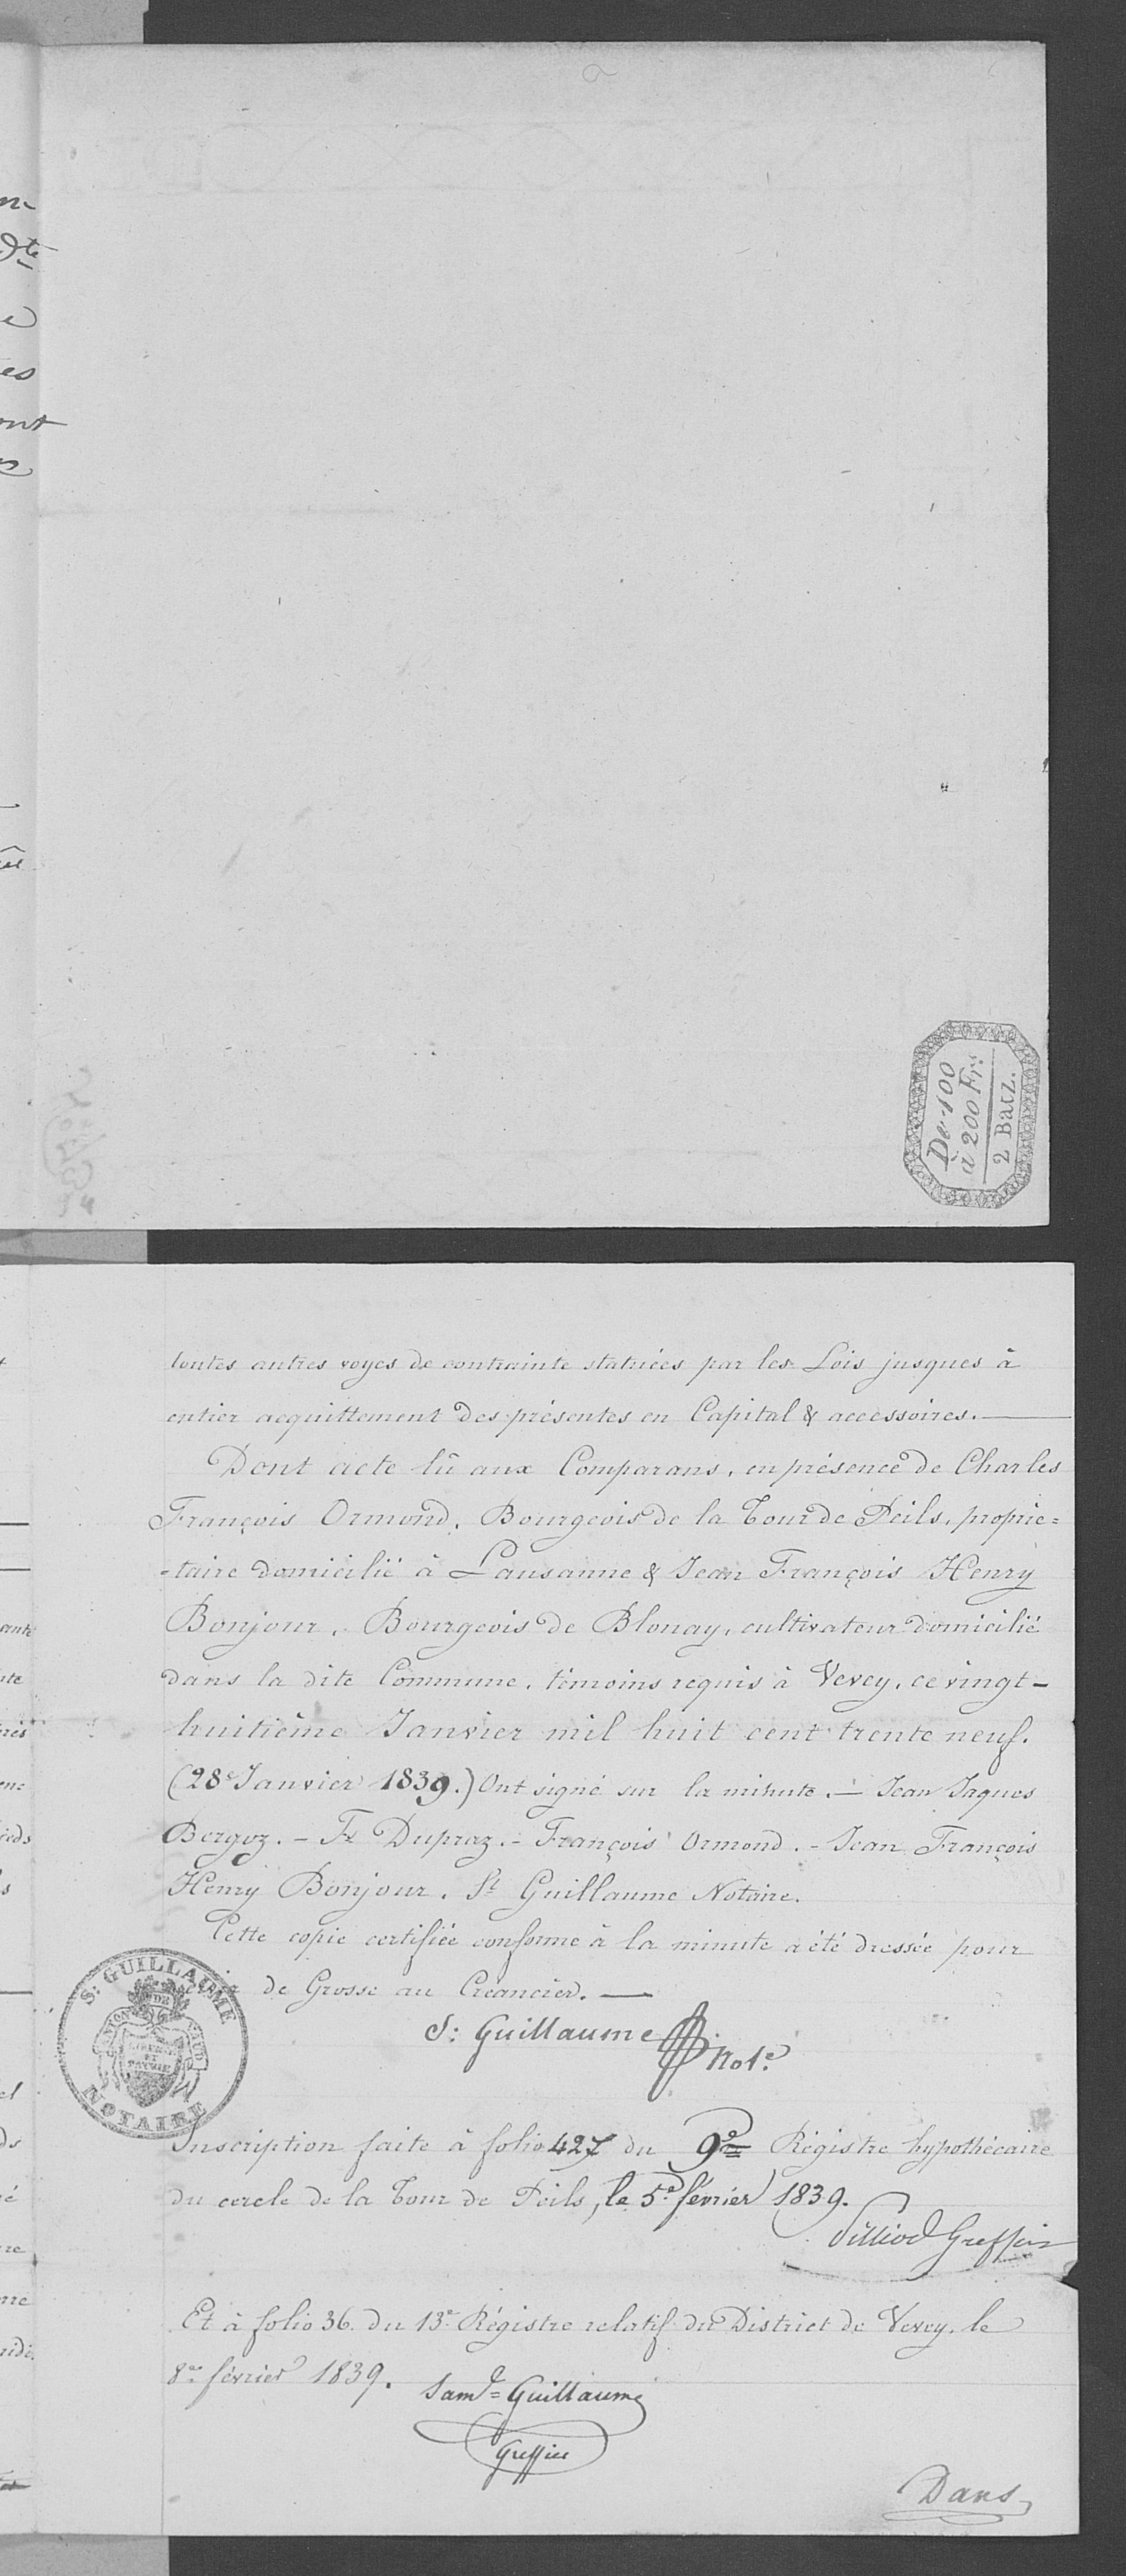 De 100
à 200 Frs
2 Batz.
toutes autres voyes de contrainte statuées par les Lois jusques à
entier acquittement des présentes en Capital & accessoires.
Dont acte lû aux Comparans, en présence de Charles
François Ormond, Bourgeois de la Tour de Peils, proprié=
=taire domicilié à Lausanne & Jean François Henry
Bonjour, Bourgeois de Blonay, cultivateur domicilié
dans la dite Commune, témoins requis à Vevey, ce vingt-
huitième Janvier mil huit cent trente neuf.
(28e Janvier 1839.) Ont signé sur la minute. — Jean Jaques
Bergoz. - Fs Dupraz. - François Ormond. - Jean François
Henry Bonjour. Sl Guillaume Notaire.
Cette copie certifiée conforme à la minute a été dressée pour
de Grosse au Créancier. —
S: GUILLAUME
CANTON DE VAUD
LIBERTÉ
ET
PATRIE
NOTAIRE
S: Guillaume Note
Inscription faite à folio 427 du 9e Régistre hypothécaire
du cercle de la Tour de Peils, le 5e février 1839.
Greffier
Et à folio 36 du 13e Régistre relatif du District de Vevey, le
8e février 1839.
Saml= Guillaume
Greffier
Dans